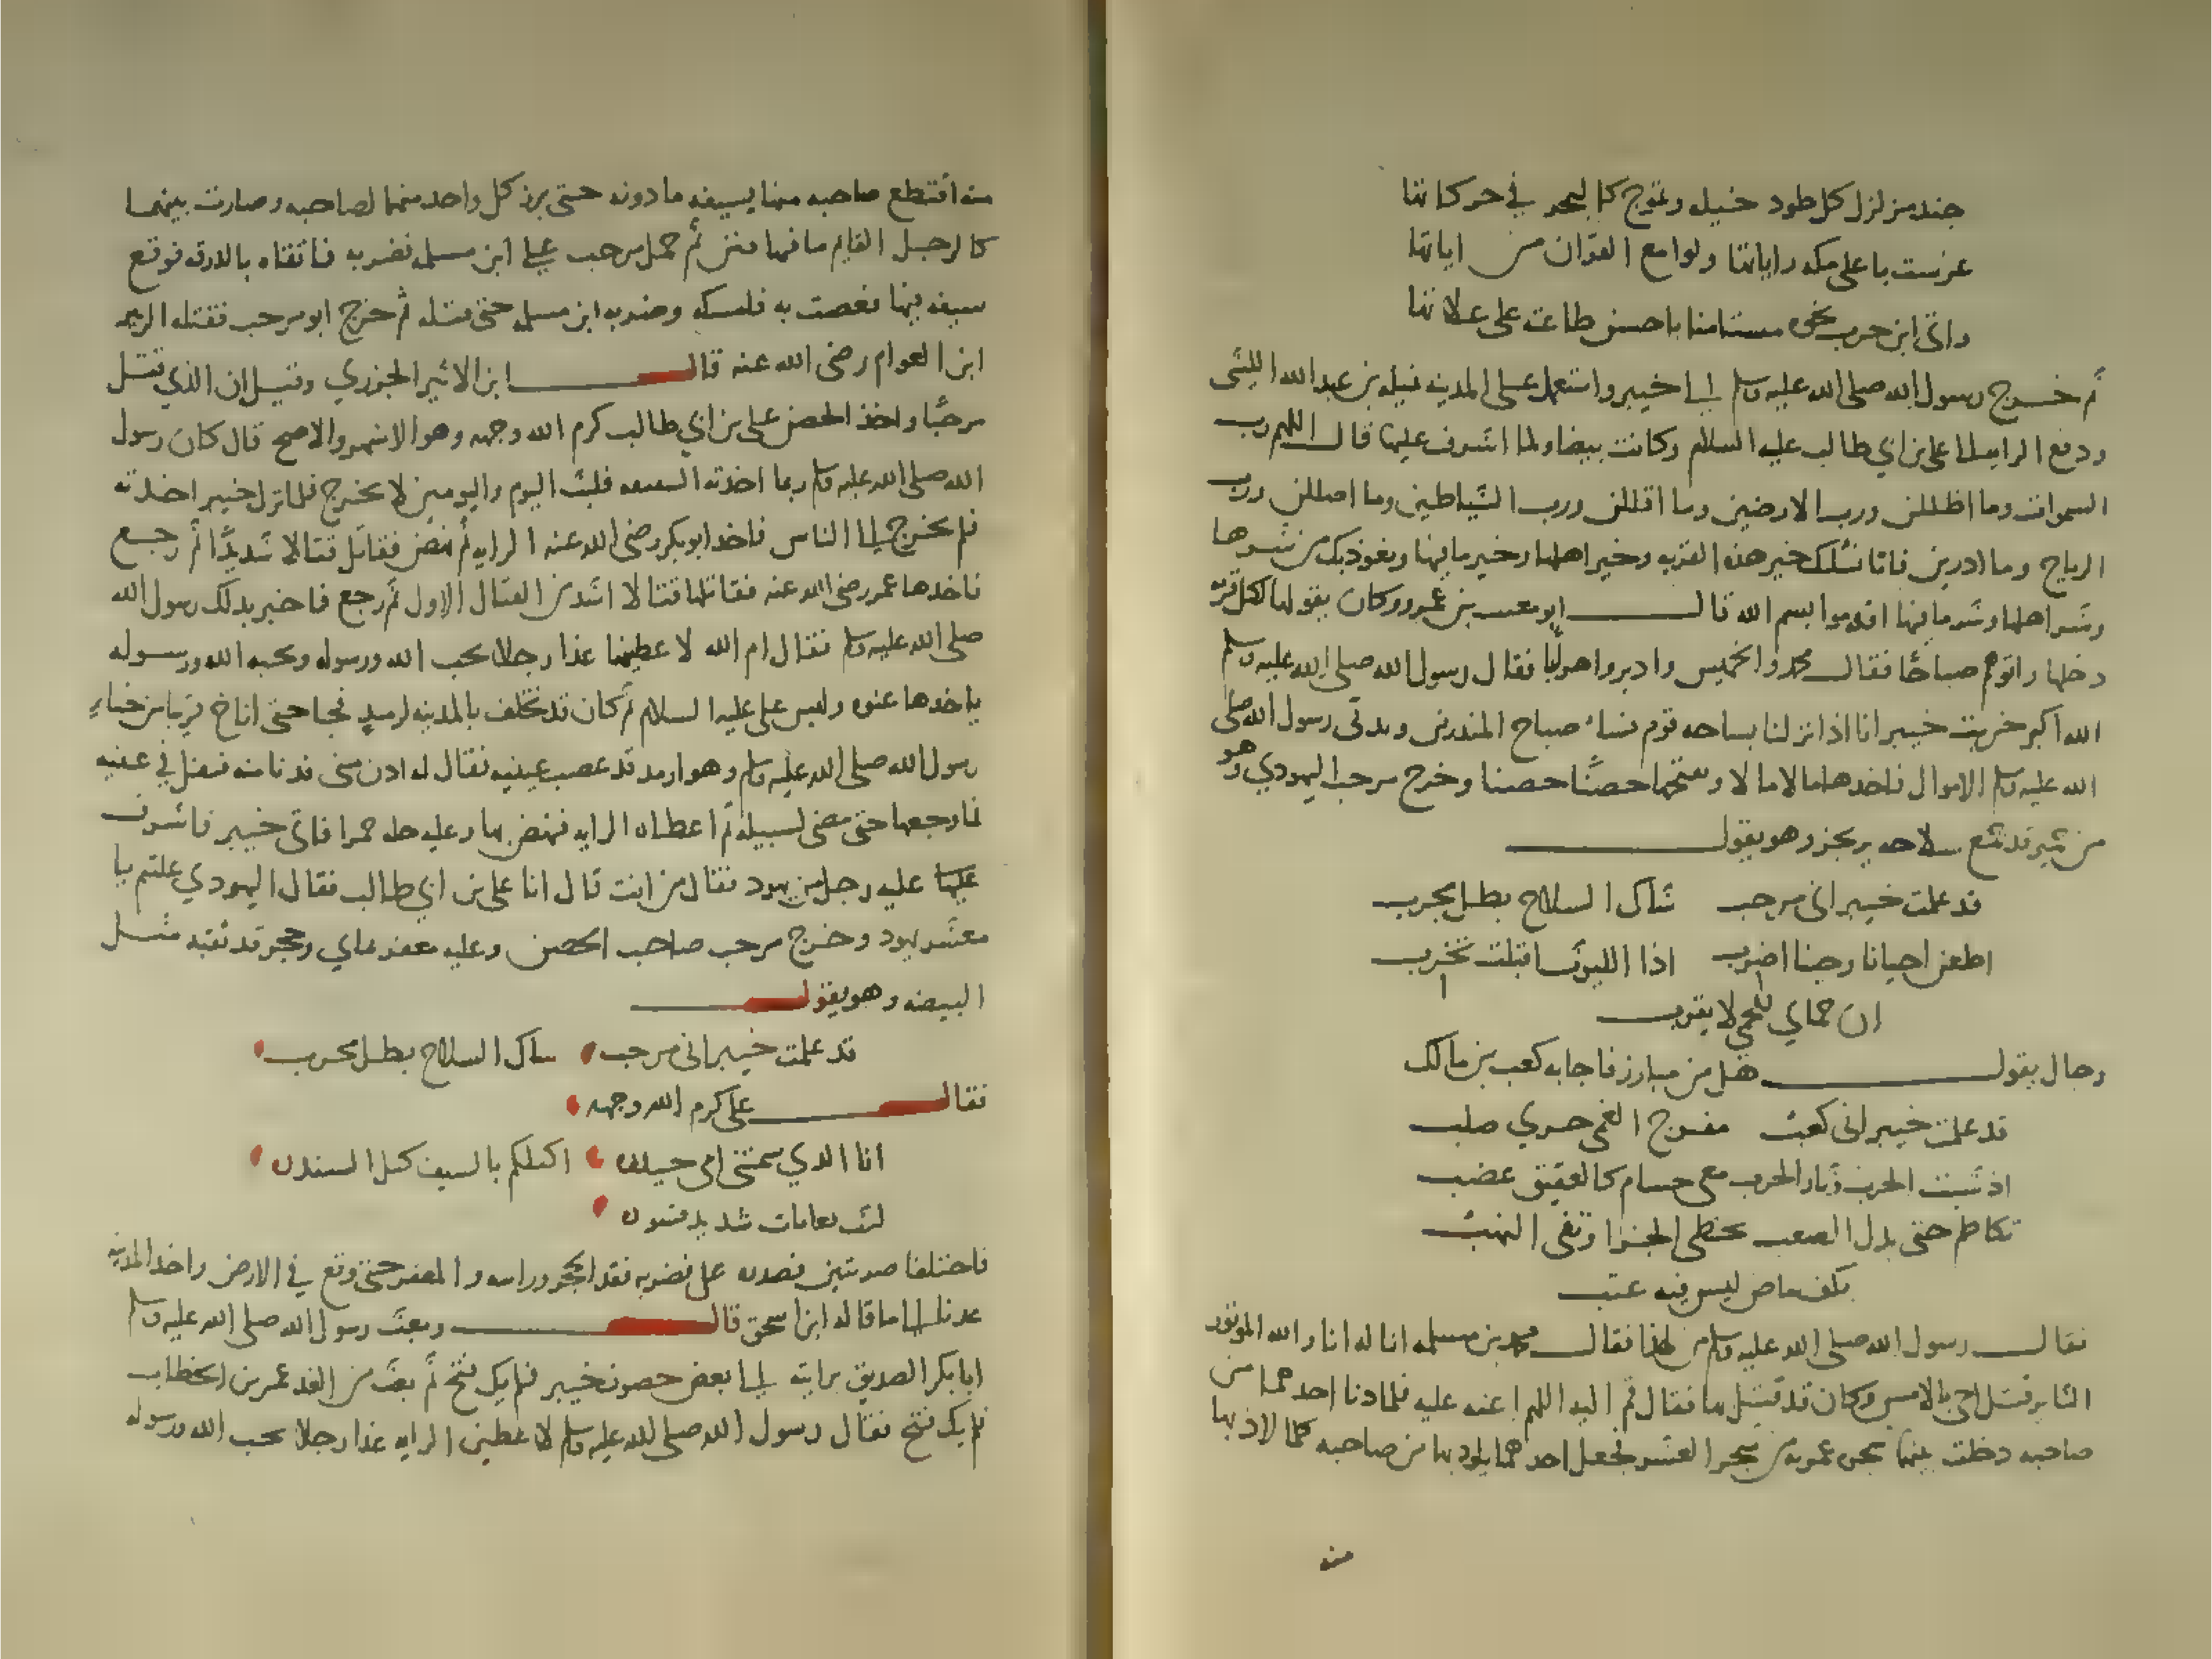 جند مزلزل كل طود خيله وتموج كالبحر في حركاتها
عزست باعلى مكه راياتها ولوامع القران من اياتها
واتى ابن حرب نحوه مستامنا باحسن طاعته على علاتها
ثم خرج رسول الله صلى الله عليه وسلم الى خيبر واستعمل على المدينه نميله بن عبد الله الليثى
ودفع الرايه الى على بن ابي طالب عليه السلام وكانت بيضا ولما اشرف عليها قال اللهم رب
السموات وما اظللن ورب الارضين وما اقللن ورب الشياطين وما اضللن ورب
الرياح وما اذرين فانا نسلك خير هذه القريه وخير اهلها وخير ما فيها ونعوذ بك من شرها
وشر اهلها وشر ما فيها اقدموا بسم الله قال ابو معتب بن عمرو وكان يقولها لكل قريه
دخلها واتوهم صباحًا فقال محمد والخميس وادبروا هربًا فقال رسول الله صلى الله عليه وسلم
الله اكبر خربت خيبر انا اذا نزلنا بساحه قوم فساء صباح المنذرين وبدنى رسول الله صلى
الله عليه وسلم الاموال فاخدها مالا مالا وفتحها حصنًا حصنا وخرج مرحب اليهودي وهو
من حمير قد جمع سلاحه يرتجز وهو يقول
قد علمت خيبر انى مرحب شاك السلاح بطل مجرب
اطعن احيانا وحينا اضرب اذا الليوث اقبلت تحرب
ان حماي للحمى لا يقرب
وجال يقول هل من مبارز فاجابه كعب بن مالك
قد علمت خيبر انى كعب مفرج الغمى جري صلب
اذ شبت الحرب نار الحرب معى حسام كالعقيق عضب
نكاكم حتى يدل الصعب نعطى الجزا او نفى النهب
بكف ماض ليس فيه عتب
فقال رسول الله صلى الله عليه وسلم من لهذا فقال محمد بن مسلمه انا له انا والله الموتور
الثاير قتل اخى بالامس وكان قد قتل بها فقال قم اليه اللهم اعنه عليه فلما دنا احدهما من
صاحبه دخلت بينهما شجره عمريه من شجر العشر فجعل احدهما يلوذ بها من صاحبه كلما لاذ بها
منه
منه اقتطع صاحبه منها بسيفه ما دونه حتى برز كل واحد منهما لصاحبه وصارت بينهما
كالرجل القايم ما فيها فنن ثم حمل مرحب على ابن مسلمه فضربه فاتقاه بالدرقه فوقع
سيفه فيها فعضت به فامسكه وضربه ابن مسلمه حتى قتله ثم خرج ابو مرحب فقتله الزبير
ابن العوام رضى الله عنه قال ابن الاثير الجزري وقيل ان الذي قتل
مرحبًا واخذ الحصن على بن ابي طالب كرم الله وجهه وهو الاشهر والاصح قال كان رسول
الله صلى الله عليه وسلم ربما اخذته الشقيقه فلبث اليوم واليومين لا يخرج فلما نزل خيبر اخذته
فلم يخرج الى الناس فاخد ابو بكر رضى الله عنه الرايه ثم نهض فقاتل قتالا شديدًا ثم رجع
فاخدها عمر رضى الله عنه فقاتلها قتالا اشد من القتال الاول ثم رجع فاخبر بدلك رسول الله
صلى الله عليه وسلم فقال ام الله لاعطينها غدا رجلا يحب الله ورسوله ويحبه الله ورسوله
ياخدها عنوه وليس على عليه السلام ثم كان قد تخلف بالمدينه لرمد فجا حتى اناخ قريبا من خباء
رسول الله صلى الله عليه وسلم وهو ارمد قد عصب عينيه فقال له ادن منى فدنا منه فتفل في عينيه
فما وجعها حتى مضى لسبيله ثم اعطاه الرايه فنهض بها وعليه حله حمرا فاتى خيبر فاشرف
عليها عليه رجل من يهود فقال من انت قال انا على بن ابي طالب فقال اليهودي علمتم يا
معشر يهود وخرج مرحب صاحب الحصن وعليه مغفر يماني وحجر قد ثقبه مثل
البيضه وهو يقول
قد علمت خيبر انى مرحب شاك السلاح بطل مجرب
فقال على كرم الله وجهه
انا الذي سمتنى امى حيدره اكيلكم بالسيف كيل السندره
ليث بغابات شديد قسوره
فاختلفا ضربتين فبدره على فضربه فقد الحجر وراسه والمغفر حتى وقع في الارض واخذ المدينه
عدنا الى ما قاله ابن اسحق قال وبعث رسول الله صلى الله عليه وسلم
ابا بكر الصديق برايته الى بعض حصون خيبر فلم يك فتح ثم بعث من الغد عمر بن الخطاب
فلم يك فتح فقال رسول الله صلى الله عليه وسلم لاعطين الرايه غدا رجلا يحب الله ورسوله